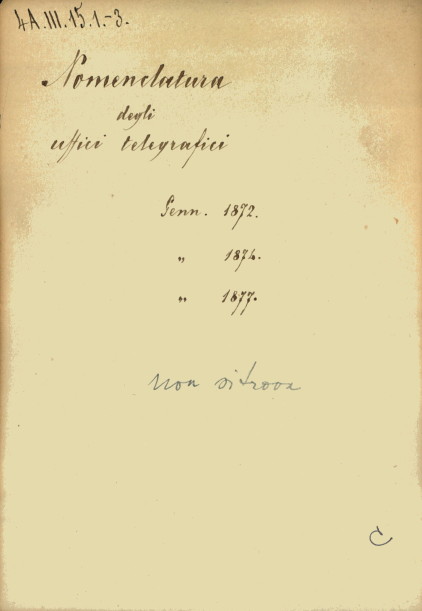 4A.III.15.1.-3.
Nomenclatura
degli
uffici telegrafici
Genn. 1872.
" 1874.
" 1877.
non si trova
C